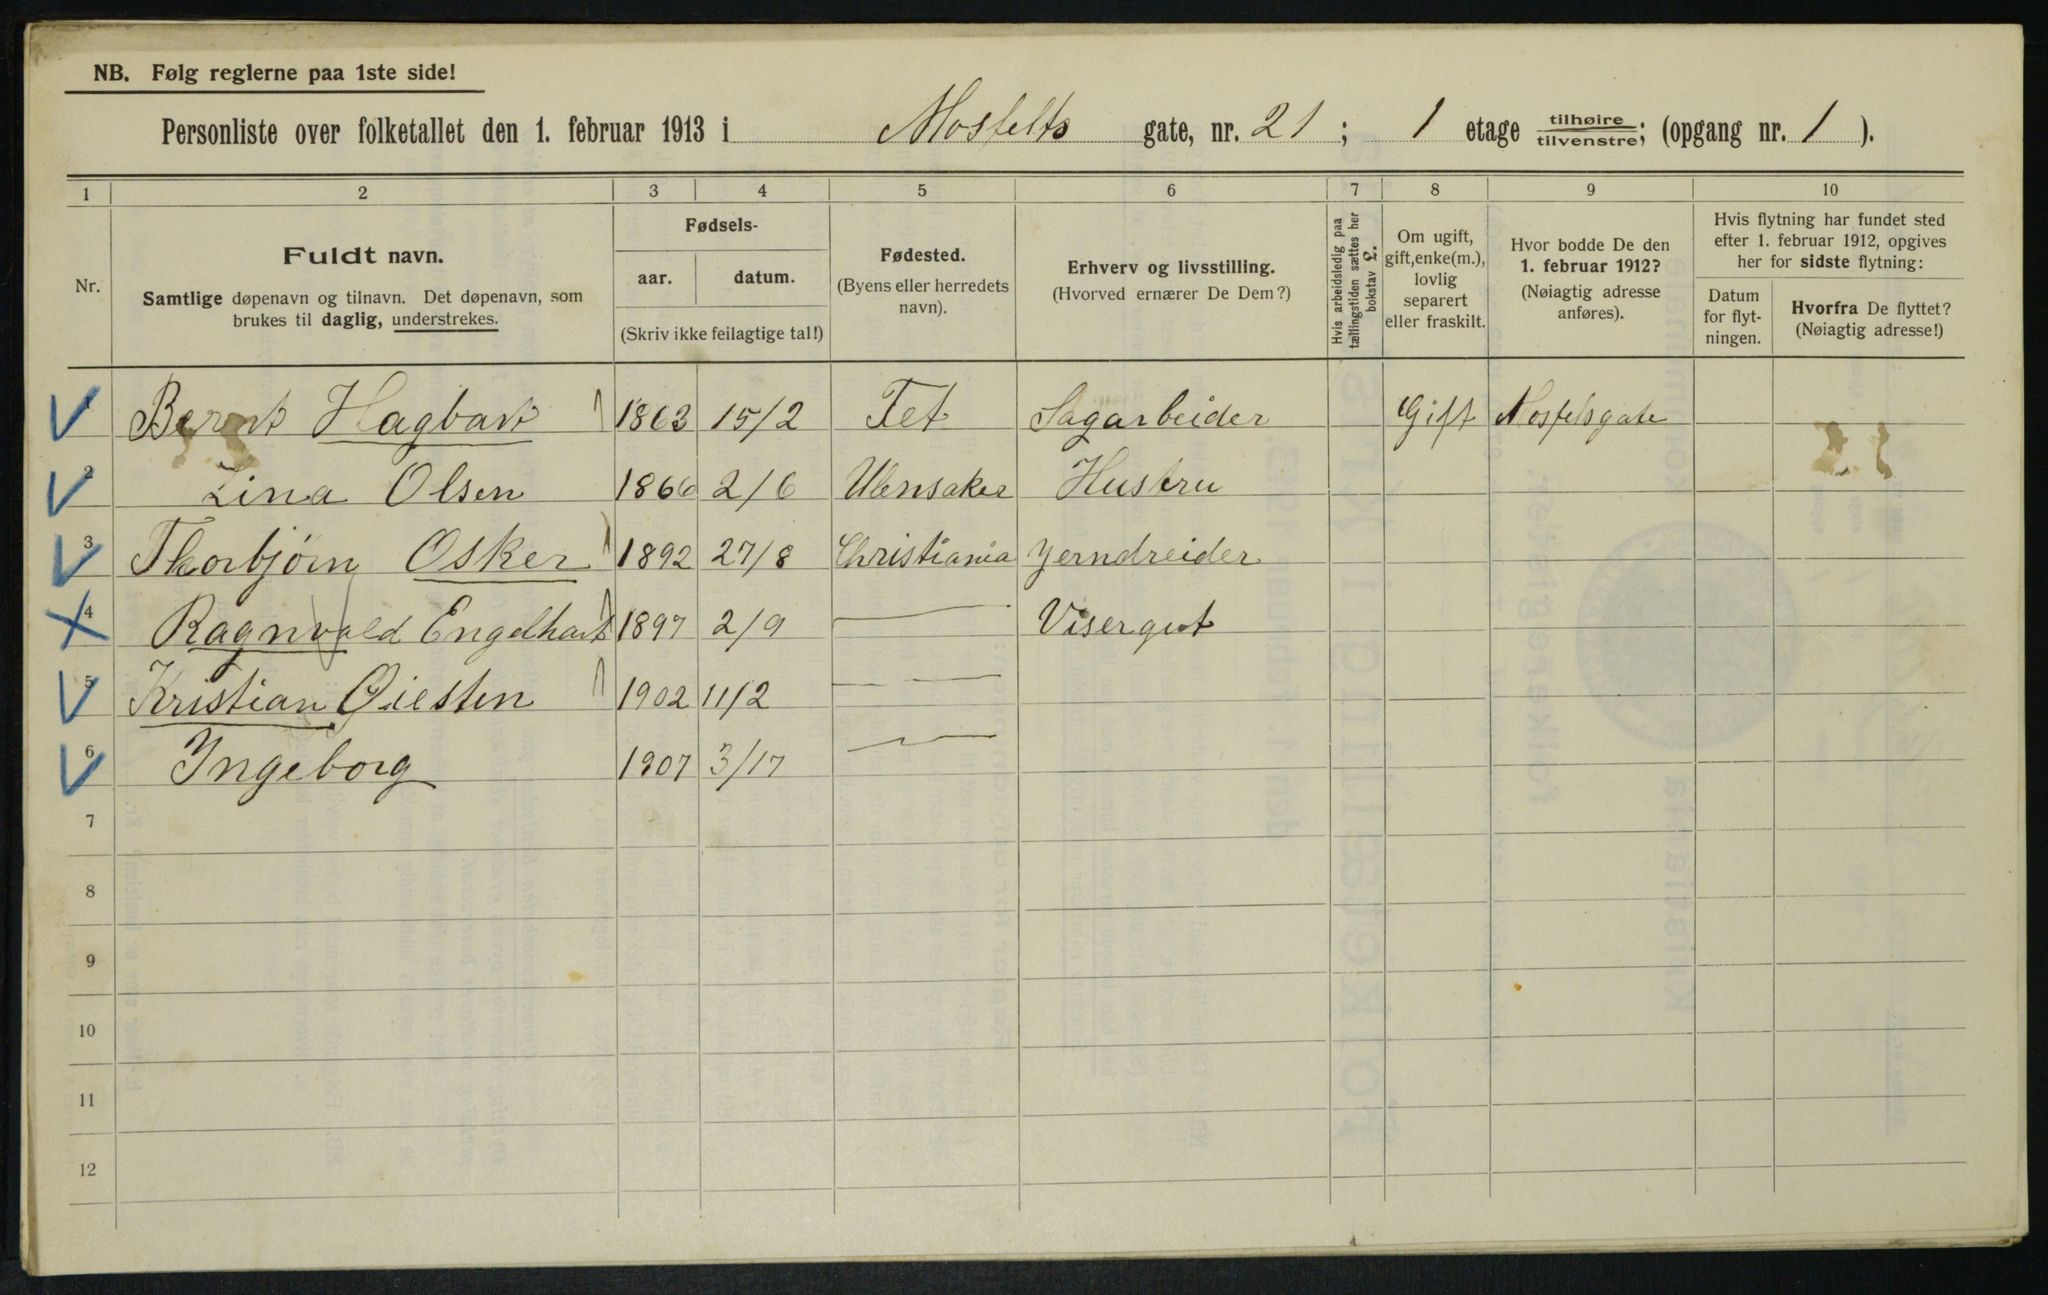 NB. Følg reglerne paa 1ste side!
Personliste over folketallet den 1. februar 1913 i Mosfelts gate, nr. 21; 1 etage tilhøire / tilvenstre; (opgang nr. 1).
1 2 3 4 5 6 7 8 9 10
Nr.
Fuldt navn.
Samtlige døpenavn og tilnavn. Det døpenavn, som
brukes til daglig, understrekes.
Fødsels-
aar. datum.
(Skriv ikke feilagtige tal!)
Fødested.
(Byens eller herredets
navn).
Erhverv og livsstilling.
(Hvorved ernærer De Dem?)
Hvis arbeidsledig paa
tællingstiden sættes her
bokstav £.
Om ugift,
gift, enke(m.),
lovlig
separert
eller fraskilt.
Hvor bodde De den
1. februar 1912?
(Nøiagtig adresse
anføres).
Hvis flytning har fundet sted
efter 1. februar 1912, opgives
her for sidste flytning:
Datum
for flyt-
ningen.
Hvorfra De flyttet?
(Nøiagtig adresse!)
1 Bernt Hagbart 1863 15/2 Fet Sagarbeider Gift Mosfelsgate
2 Lina Olsen 1866 2/6 Ulensaker Hustru
3 Thorbjørn Osker 1892 27/8 Christiania Yerndreider
4 Ragnvald Engelhart 1897 2/9 — Visergut
5 Kristian Øiesten 1902 11/2 —
6 Ingeborg 1907 3/17 —
7
8
9
10
11
12